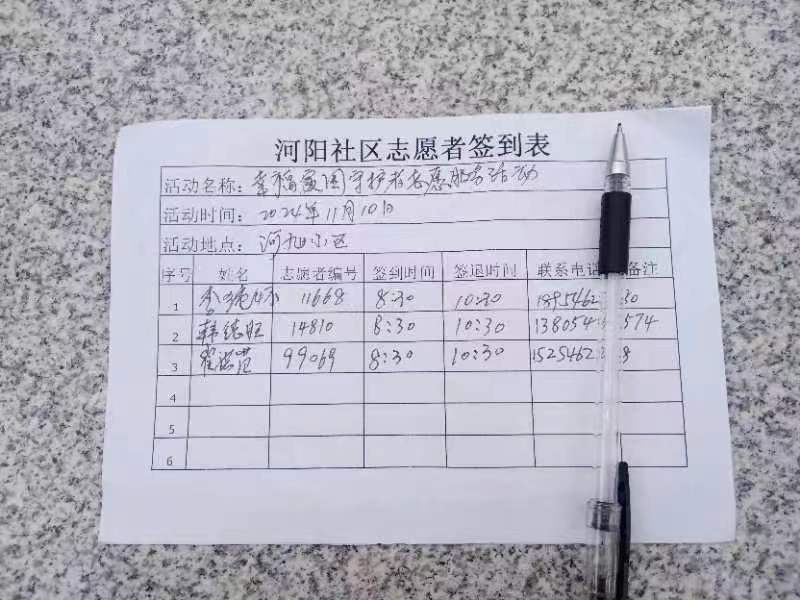 河阳社区志愿者签到表
活动名称：幸福家园守护者志愿服务活动
活动时间：2024年11月10日
活动地点：河阳小区
序号 姓名 志愿者编号 签到时间 签退时间 联系电话 备注
1 11668 8:30 10:30 1895462 30
2 韩德旺 14810 8:30 10:30 138054 574
3 翟洪范 99069 8:30 10:30 1525462 8
4
5
6